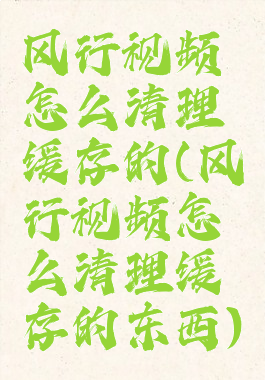 风行视频
怎么清理
缓存的(风
行视频怎
么清理缓
存的东西)